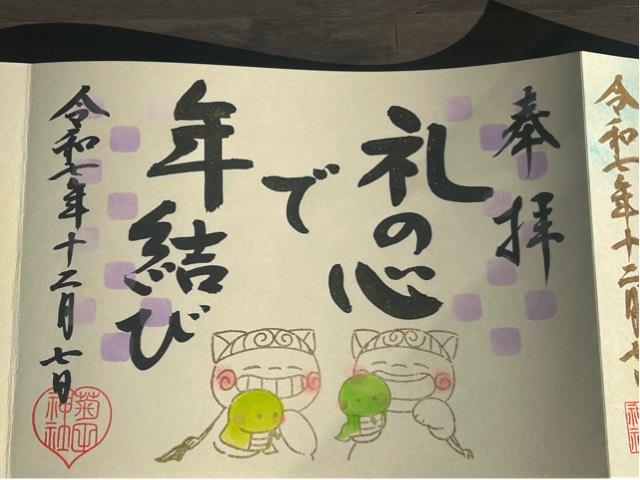 奉拝
礼の心
で
年結び
令和七年十二月七日
神社
令和七年十二月七日